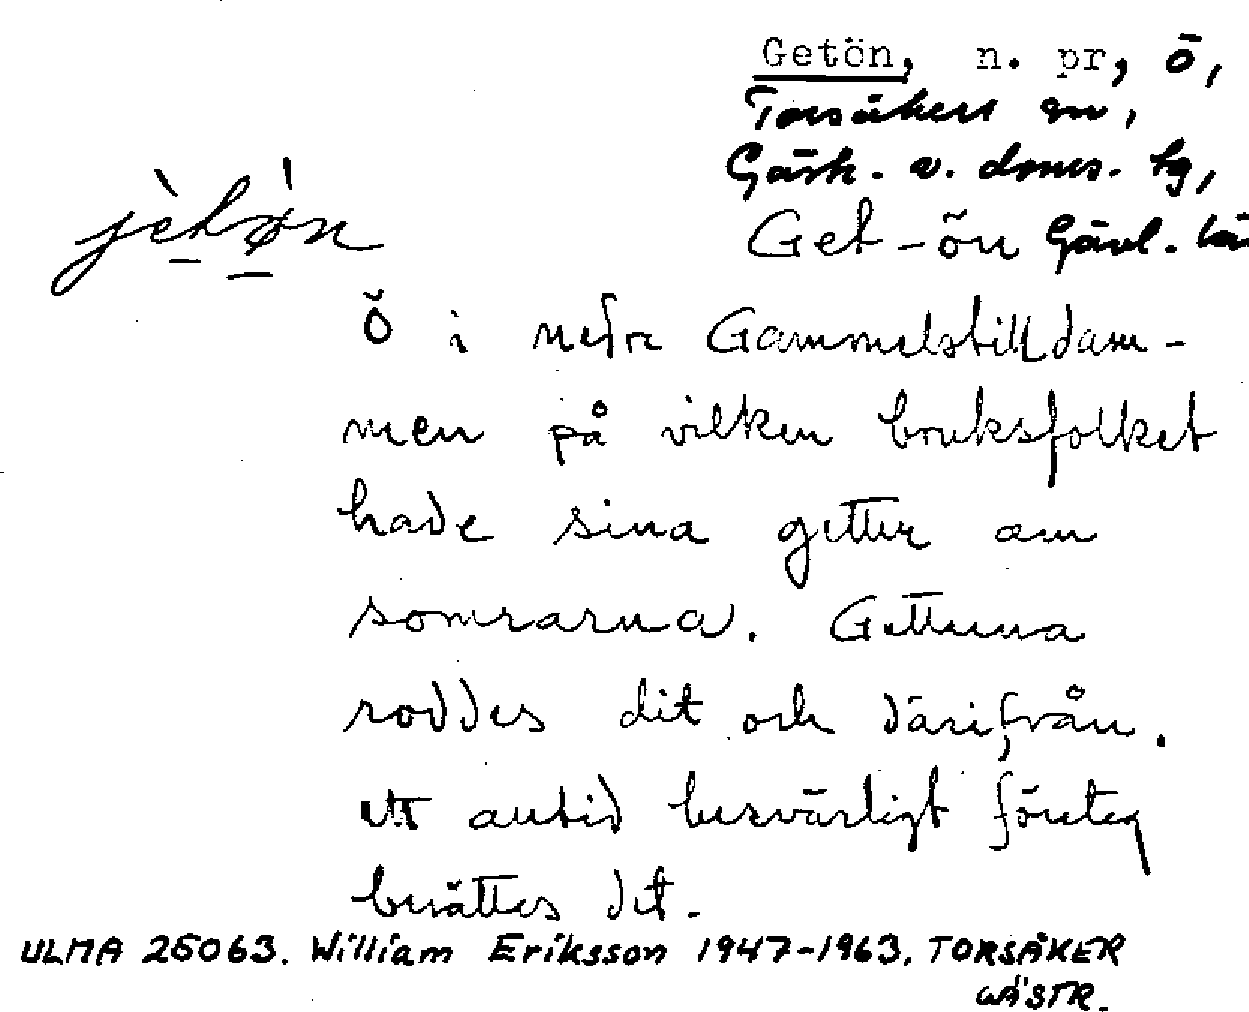 Getön, n. pr, ö,
Torsåkers sn,
Gästr. v. doms. tg,
jètøn
Get-ön Gävl. lä
Ö i nedre Gammelstilldam-
men på vilken bruksfolket
hade sina getter om
somrarna. Getterna
roddes dit och därifrån.
ett antid besvärligt företag
berättes det.
ULMA 25063. William Eriksson 1947-1963. TORSÅKER
GÄSTR.